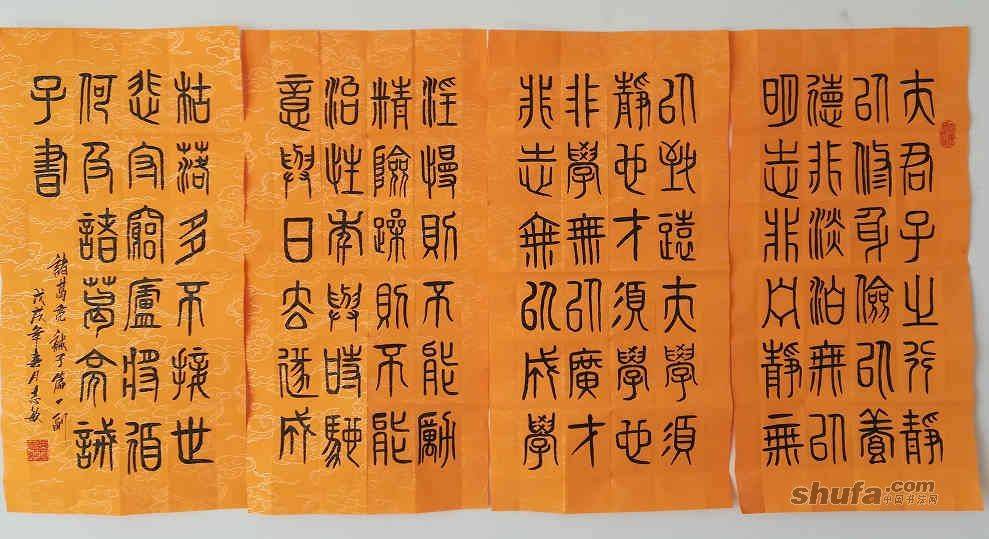 夫君子之行靜
以修身儉以養
德非淡泊無以
明志非宁靜無
以致遠夫學須
靜也才須學也
非學無以廣才
非志無以成學
淫慢則不能勵
精險躁則不能
治性年與時馳
意與日去遂成
枯落多不接世
悲守窮廬將復
何及諸葛亮誡
子書
諸葛亮誡子篇一則
戊戌年春月志敏
shufa.com
中国书法网